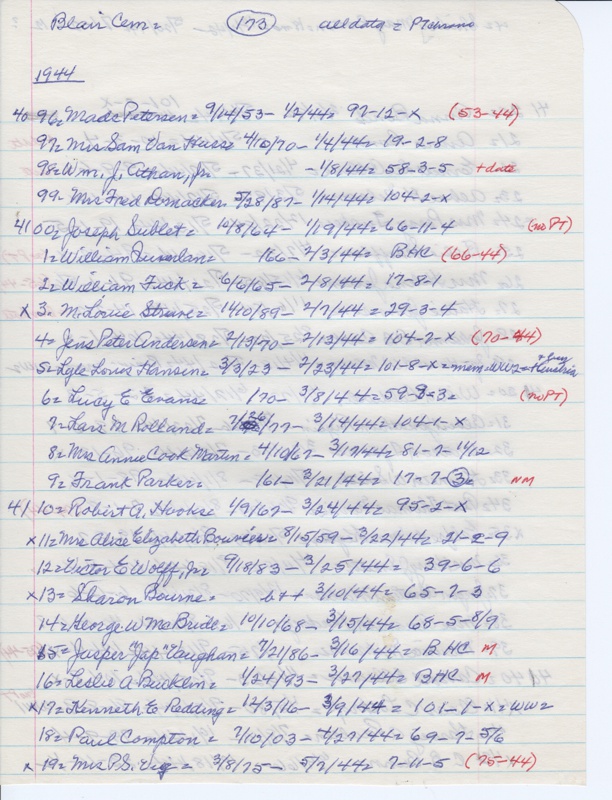 Blair Cem = 173 alldata = PTchrono
1944
40 96 = Mads Petersen = 9/14/53 - 1/2/44 = 97-12-X (53-44)
97 = Mrs Sam Van Huse 4/10/70 - 1/4/44 = 19-2-8
98 = Wm. J. Athan, Jr. - 1/8/44 = 58-3-5 + date
99 - Mrs Fred Demacker 5/28/87 - 1/14/44 = 104-2-X
41 00 = Joseph Sublet = 10/8/64 - 1/19/44 = 66-11-4 (no PT)
1 = William = 166 - 2/3/44 = BHC (66-44)
2 = William Fisk = 6/6/65 - 2/8/44 = 17-8-1
X 3 = M. Louise Struve = 14/10/89 - 2/7/44 = 29-3-4
4 = Jens Peter Andersen = 2/13/70 - 2/13/44 = 104-2-X (70-44)
5 = Lyle Louis Hansen = 3/3/23 - 2/23/44 = 101-8-X = mem = WW2 =
6 = Lucy E Evans 1/70 - 3/8/44 = 59-9-3 = (no PT)
7 = Lars M Rolland = 7/26/77 - 3/14/44 = 104-1-X
8 = Mrs Annie Cook Martin = 4/10/67 - 3/17/44 = 81-7-11/12
9 = Frank Parker = 161 - 3/21/44 = 17-7-3 NM
41 10 = Robert A. Hooks 4/9/67 - 3/24/44 = 95-2-X
X 11 = Mrs Alice Elizabeth Bouvier = 8/15/59 - 3/22/44 = 21-2-9
12 = Victor E Wolff, Jr = 9/18/83 - 3/25/44 = 39-6-6
X 13 = Sharon Bourne = b++ 3/10/44 = 65-7-3
14 = George W McBride = 10/10/68 - 3/15/44 = 68-5-8/9
15 = Jasper "Jap" Vaughan = 7/21/86 - 3/16/44 = BHC M
16 = Leslie A Bucklin = 1/24/93 - 3/27/44 = BHC M
X 17 = Kenneth E Redding = 12/3/16 - 3/9/44 = 101-1-X = WW2
18 = Paul Compton = 7/10/03 - 4/27/44 = 69-7-5/6
X 19 = Mrs P.S. = 3/8/75 - 5/7/44 = 7-11-5 (75-44)